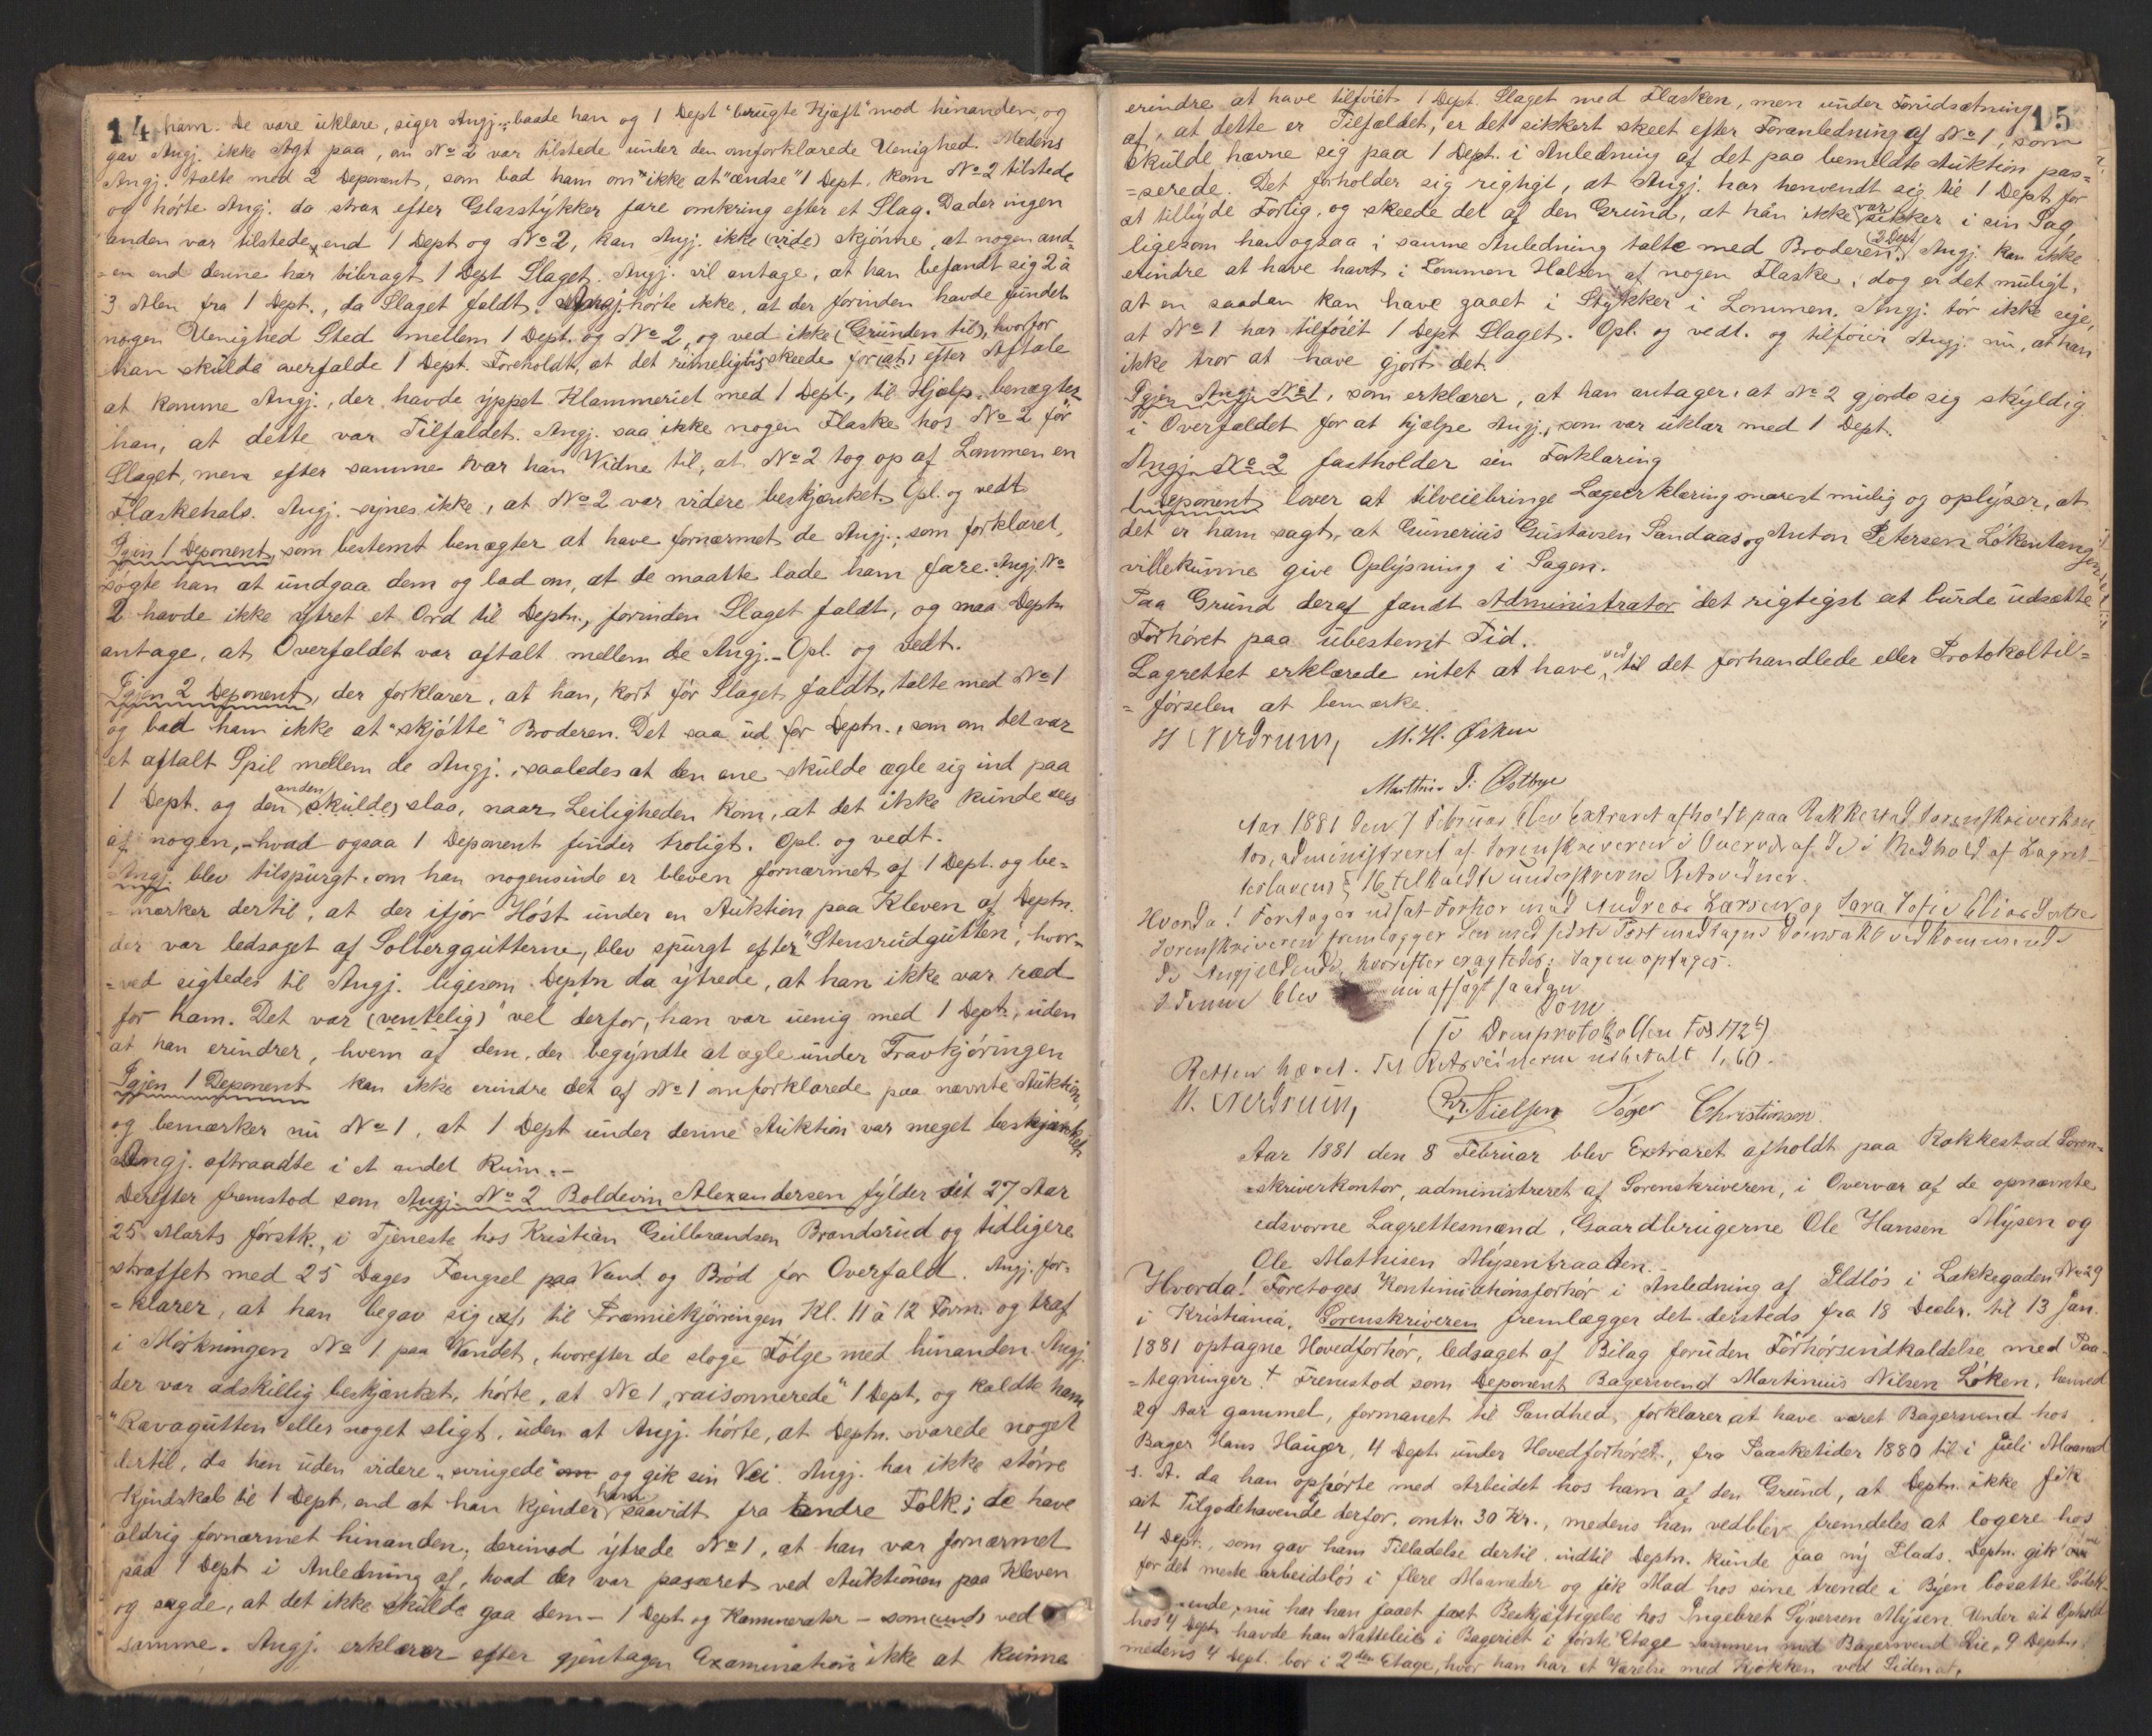 14 ham. De vare uklare, siger Angj., baade han og 1 Dept "brugte Kjæft" mod hinanden, og
gav Angj. ikke Agt paa, om No 2 var tilstede under den omforklarede Uenighed. Medens
Angj. talte med 2 Deponent, som bad ham om "ikke at "ændse" 1 Dept, kom No 2 tilstede
og hørte Angj. da strax efter Glasstykker fare omkring efter et Slag. Da der ingen
anden var tilstede, end 1 Dept og No 2, kan Angj. ikke (vide) skjønne, at nogen and-
=en end denne har bibragt 1 Dept Slaget. Angj. vil antage, at han befandt sig 2 à
3 Alen fra 1 Dept., da Slaget faldt. Angj. hørte ikke, at der forinden havde fundet
nogen Uenighed Sted mellem 1 Dept. og No 2, og ved ikke (Grunden til), hvorfor
han skulde overfalde 1 Dept. Foreholdt, at det rimeligvis skeede for (at) efter Aftale
at komme Angj., der havde yppet Klammeriet med 1 Dept., til Hjælp, benægter
han, at dette var Tilfældet. Angj. saa ikke nogen Flaske hos No 2 før
Slaget, men efter samme var han Vidne til, at No 2 tog op af Lommen en
Flaskehals. Angj. synes ikke, at No 2 var videre beskjænket. Opl. og vedt.
Igjen 1 Deponent, som bestemt benægter at have fornærmet de Angj.; som forklaret,
søgte han at undgaa dem og bad om, at de maatte lade ham fare. Angj. No
2 havde ikke ytret et Ord til Deptn., forinden Slaget faldt, og maa Deptn
antage, at Overfaldet var aftalt mellem de Angj. - Opl. og vedt.
Igjen 2 Deponent, der forklarer, at han, kort før Slaget faldt, talte med No 1
og bad ham ikke at "skjøtte" Broderen. Det saa ud for Deptn., som om det var
et aftalt Spil mellem de Angj., saaledes at den ene skulde ægle sig ind paa
1 Dept. og den anden (skulde) slaa, naar Leiligheden kom, at det ikke kunde sees
af nogen, - hvad ogsaa 1 Deponent finder troligt. Opl. og vedt.
Angj. blev tilspurgt, om han nogensinde er bleven fornærmet af 1 Dept. og be=
=mærker dertil, at der ifjor Høst under en Auktion paa Kleven af Deptn.
der var ledsaget af Solberggutterne, blev spurgt efter "Stensrudgutten", hvor=
=ved sigtedes til Angj. ligesom Deptn da ytrede, at han ikke var ræd
for ham. Det var (ventelig) vel derfor, han var uenig med 1 Dept., uden
at han erindrer, hvem af dem, der begyndte at ægle under Travkjøringen
Igjen 1 Deponent kan ikke erindre det af No 1 omforklarede paa nævnte Auktion,
og bemærker nu No 1, at 1 Dept under denne Auktion var meget beskjænket.
Angj. aftraadte i et andet Rum. -
Derefter fremstod som Angj. No 2 Boldevin Alexandersen fylder sit 27 Aar
25 Marts førstk., i Tjeneste hos Kristian Gulbrandsen Brandsrud og tidligere
straffet med 25 Dages Fængsel paa Vand og Brød for Overfald. Angj. for=
=klarer, at han begav sig (af) til Præmiekjøringen Kl. 11 à 12 Form. og traf
i Mørkningen No 1 paa Vandet, hvorefter de sloge Følge med hinanden. Angj.
der var adskillig beskjænket, hørte, at No 1 "raisonnerede" 1 Dept. og kaldte ham
"Ravagutten" eller noget sligt, uden at Angj. hørte, at Deptn. svarede noget
dertil, da hin uden videre "svingede" om og gik sin Vei. Angj. har ikke større
Kjendskab til 1 Dept, end at han kjender ham saavidt fra andre Folk; de have
aldrig fornærmet hinanden, derimod ytrede No 1, at han var fornærmet
paa 1 Dept i Anledning af, hvad der var passeret ved Auktionen paa Kleven
og sagde, at det ikke skulde gaa dem - 1 Dept og Kammerater - som (und) ved
samme. Angj. erklærer efter gjentagen Examination ikke at kunne
15
erindre at have tilføiet 1 Dept. Slaget med Flasken, men under Forudsætning
af, at dette er Tilfældet, er det sikkert skeet efter Foranledning af No 1, som
skulde hævne sig paa 1 Dept. i Anledning af det paa bemeldte Auktion pas=
=serede. Det forholder sig rigtigt, at Angj. har henvendt sig til 1 Dept for
at tilbyde Forlig, og skeede det af den Grund, at han ikke var sikker i sin Sag,
ligesom han ogsaa i samme Anledning talte med Broderen (2 Dept). Angj. kan ikke
erindre at have havt i Lommen Halsen af nogen Flaske; dog er det muligt,
at en saadan kan have gaaet i Stykker i Lommen. Angj. tør ikke sige,
at No 1 har tilføiet 1 Dept Slaget. Opl. og vedt. og tilføier Angj. nu, at han
ikke tror at have gjort det
Igjen Angj. No 1, som erklærer, at han antager, at No 2 gjorde sig skyldig
i Overfaldet for at hjælpe Angj., som var uklar med 1 Dept.
Angj. No 2 fastholder sin Forklaring
1 Deponent lover at tilveiebringe Lægeerklæring snarest mulig og oplyser, at
det er ham sagt, at Gunerius Gustavsen Sandaas og Anton Petersen Løkentangen
ville kunne give Oplysning i Sagen.
Paa Grund deraf fandt Administrator det rigtigst at burde udsætte
Forhøret paa ubestemt Tid.
Lagrettet erklærede intet at have ved, til det forhandlede eller Protokoltil=
=førselen at bemærke.
H Nerdrum, M. H. Ørken
Martin J. Østbye
Aar 1881 den 7 Februar blev Extraret afholdt paa Rakkestad Sorenskriverkon
tor, administreret af Sorenskriveren i Overvær af de i Medhold af Lagret-
teslovens § 16 tilkaldte underskrevne Retsvidner.
Hvorda! Foretoges udsat Forhør mod Andreas Larsen og Sara Sofie Elias Datter
Sorenskriveren fremlægger den med sidste Post modtagne Domsakt vedkommende
de Angjeldende, hvorefter eragtedes: Sagen optages.
I denne blev nu afsagt saadan
Dom
(se Domprotokollen Fol 172b)
Retten hævet. Til Retsvidnerne udbetalt 1,60.
H. Nerdrum, Chr. Nielsen Christiansen.
Aar 1881 den 8 Februar blev Extraret afholdt paa Rakkestad Soren=
=skriverkontor, administreret af Sorenskriveren, i Overvær af de opnævnte
edsvorne Lagrettesmænd, Gaardbrugerne Ole Hansen Mysen og
Ole Mathisen Mysentraaden.
Hvorda! Foretoges Kontinuationsforhør i Anledning af Ildløs i Lakkegaden No 29
i Kristiania. Sorenskriveren fremlægger det dersteds fra 18 Decbr. til 13 Jan.
1881 optagne Hovedforhør, ledsaget af Bilag foruden Forhørsindkaldelse med Paa-
=tegninger. + Fremstod som Deponent Bagersvend Martinius Nilsen Løken, henved
29 Aar gammel, formanet til Sandhed, forklarer at have været Bagersvend hos
Bager Hans Hauger, 4 Dept. under Hovedforhøret, fra Paasketider 1880 til i Juli Maaned
s. A. da han ophørte med Arbeidet hos ham af den Grund, at Deptn. ikke fik
sit Tilgodehavende derfor, omtr. 30 Kr., medens han vedblev fremdeles at logere hos
4 Dept., som gav ham Tilladelse dertil, indtil Deptn. kunde faa ny Plads. Deptn. gik
for det meste arbeidsløs i flere Maaneder og fik Mad hos sine trende i Byen bosatte Sødsk-
ende, nu har han faaet fast Beskjæftigelse hos Ingebret Syversen Mysen. Under sit Ophold
hos 4 Dept. havde han Natteleie i Bageriet i første Etage sammen med Bagersvend Lie, 9 Deptn.
medens 4 Dept. bor i 2den Etage, hvor han har et Værelse med Kjøkken ved Siden af.